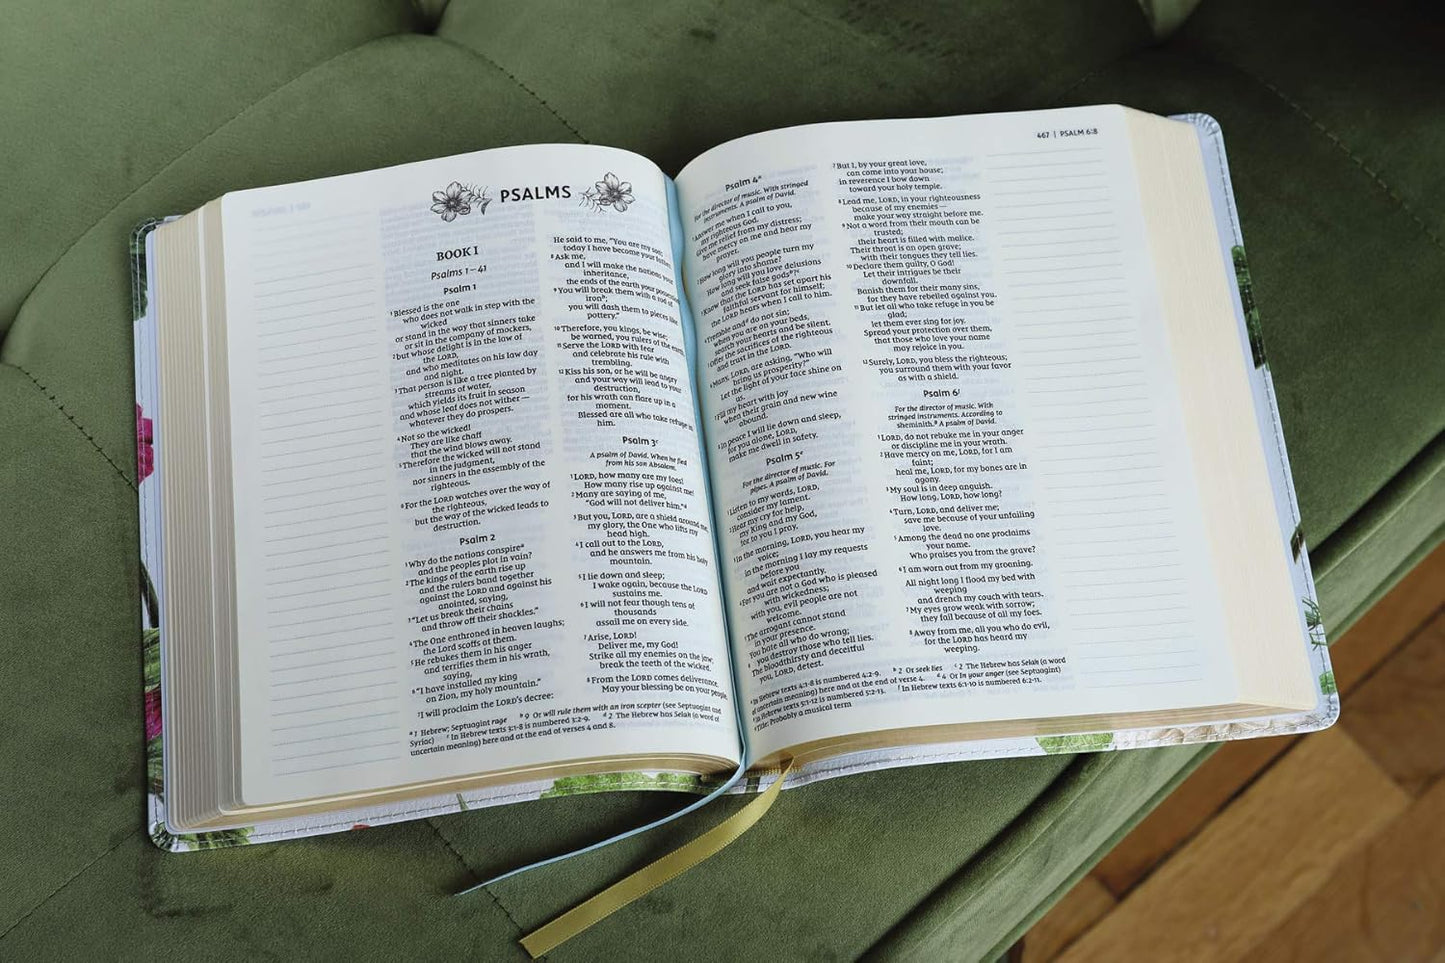 PSALMS
BOOK I
Psalms 1–41
Psalm 1
1Blessed is the one
who does not walk in step with the
wicked
or stand in the way that sinners take
or sit in the company of mockers,
2but whose delight is in the law of
the LORD,
and who meditates on his law day
and night.
3That person is like a tree planted by
streams of water,
which yields its fruit in season
and whose leaf does not wither —
whatever they do prospers.
4Not so the wicked!
They are like chaff
that the wind blows away.
5Therefore the wicked will not stand
in the judgment,
nor sinners in the assembly of the
righteous.
6For the LORD watches over the way of
the righteous,
but the way of the wicked leads to
destruction.
Psalm 2
1Why do the nations conspirea
and the peoples plot in vain?
2The kings of the earth rise up
and the rulers band together
against the LORD and against his
anointed, saying,
3“Let us break their chains
and throw off their shackles.”
4The One enthroned in heaven laughs;
the Lord scoffs at them.
5He rebukes them in his anger
and terrifies them in his wrath,
saying,
6“I have installed my king
on Zion, my holy mountain.”
7I will proclaim the LORD’s decree:
He said to me, “You are my son;
today I have become your father.
8Ask me,
and I will make the nations your
inheritance,
the ends of the earth your possession.
9You will break them with a rod of
ironb;
you will dash them to pieces like
pottery.”
10Therefore, you kings, be wise;
be warned, you rulers of the earth.
11Serve the LORD with fear
and celebrate his rule with
trembling.
12Kiss his son, or he will be angry
and your way will lead to your
destruction,
for his wrath can flare up in a
moment.
Blessed are all who take refuge in
him.
Psalm 3c
A psalm of David. When he fled
from his son Absalom.
1LORD, how many are my foes!
How many rise up against me!
2Many are saying of me,
“God will not deliver him.”d
3But you, LORD, are a shield around me,
my glory, the One who lifts my
head high.
4I call out to the LORD,
and he answers me from his holy
mountain.
5I lie down and sleep;
I wake again, because the LORD
sustains me.
6I will not fear though tens of
thousands
assail me on every side.
7Arise, LORD!
Deliver me, my God!
Strike all my enemies on the jaw;
break the teeth of the wicked.
8From the LORD comes deliverance.
May your blessing be on your people.
a 1 Hebrew; Septuagint rage b 9 Or will rule them with an iron scepter (see Septuagint and
Syriac) c In Hebrew texts 3:1-8 is numbered 3:2-9. d 2 The Hebrew has Selah (a word of
uncertain meaning) here and at the end of verses 4 and 8.
467 | PSALM 6:8
Psalm 4a
For the director of music. With stringed
instruments. A psalm of David.
1Answer me when I call to you,
my righteous God.
Give me relief from my distress;
have mercy on me and hear my
prayer.
2How long will you people turn my
glory into shame?
How long will you love delusions
and seek false godsb?c
3Know that the LORD has set apart his
faithful servant for himself;
the LORD hears when I call to him.
4Tremble andd do not sin;
when you are on your beds,
search your hearts and be silent.
5Offer the sacrifices of the righteous
and trust in the LORD.
6Many, LORD, are asking, “Who will
bring us prosperity?”
Let the light of your face shine on
us.
7Fill my heart with joy
when their grain and new wine
abound.
8In peace I will lie down and sleep,
for you alone, LORD,
make me dwell in safety.
Psalm 5e
For the director of music. For
pipes. A psalm of David.
1Listen to my words, LORD,
consider my lament.
2Hear my cry for help,
my King and my God,
for to you I pray.
3In the morning, LORD, you hear my
voice;
in the morning I lay my requests
before you
and wait expectantly.
4For you are not a God who is pleased
with wickedness;
with you, evil people are not
welcome.
5The arrogant cannot stand
in your presence.
You hate all who do wrong;
6you destroy those who tell lies.
The bloodthirsty and deceitful
you, LORD, detest.
7But I, by your great love,
can come into your house;
in reverence I bow down
toward your holy temple.
8Lead me, LORD, in your righteousness
because of my enemies —
make your way straight before me.
9Not a word from their mouth can be
trusted;
their heart is filled with malice.
Their throat is an open grave;
with their tongues they tell lies.
10Declare them guilty, O God!
Let their intrigues be their
downfall.
Banish them for their many sins,
for they have rebelled against you.
11But let all who take refuge in you be
glad;
let them ever sing for joy.
Spread your protection over them,
that those who love your name
may rejoice in you.
12Surely, LORD, you bless the righteous;
you surround them with your favor
as with a shield.
Psalm 6f
For the director of music. With
stringed instruments. According to
sheminith.g A psalm of David.
1LORD, do not rebuke me in your anger
or discipline me in your wrath.
2Have mercy on me, LORD, for I am
faint;
heal me, LORD, for my bones are in
agony.
3My soul is in deep anguish.
How long, LORD, how long?
4Turn, LORD, and deliver me;
save me because of your unfailing
love.
5Among the dead no one proclaims
your name.
Who praises you from the grave?
6I am worn out from my groaning.
All night long I flood my bed with
weeping
and drench my couch with tears.
7My eyes grow weak with sorrow;
they fail because of all my foes.
8Away from me, all you who do evil,
for the LORD has heard my
weeping.
a In Hebrew texts 4:1-8 is numbered 4:2-9. b 2 Or seek lies c 2 The Hebrew has Selah (a word
of uncertain meaning) here and at the end of verse 4. d 4 Or In your anger (see Septuagint)
e In Hebrew texts 5:1-12 is numbered 5:2-13. f In Hebrew texts 6:1-10 is numbered 6:2-11.
g Title: Probably a musical term